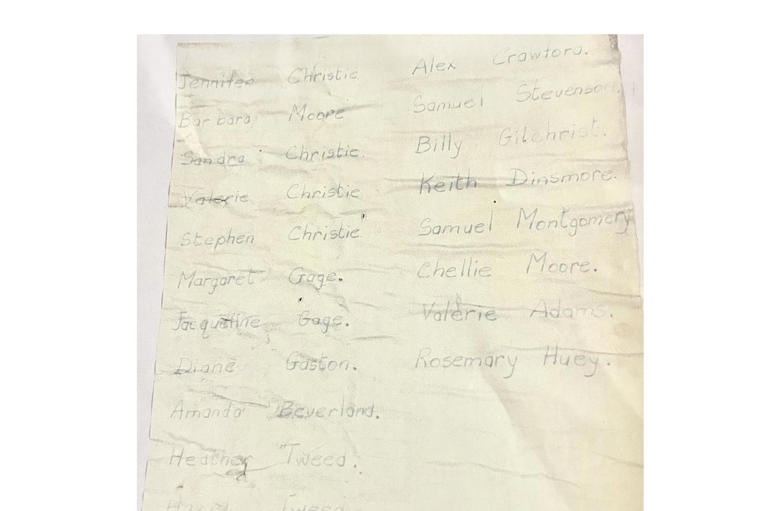 Jennifer Christie
Barbara Moore
Sandra Christie.
Valerie Christie
Stephen Christie
Margaret Gage.
Jacqueline Gage.
Diane Gaston.
Amanda Beverland.
Heather Tweed.
Tweed
Alex Crawford.
Samuel Stevenson.
Billy Gilchrist.
Keith Dinsmore.
Samuel Montgomery
Chellie Moore.
Valerie Adams.
Rosemary Huey.